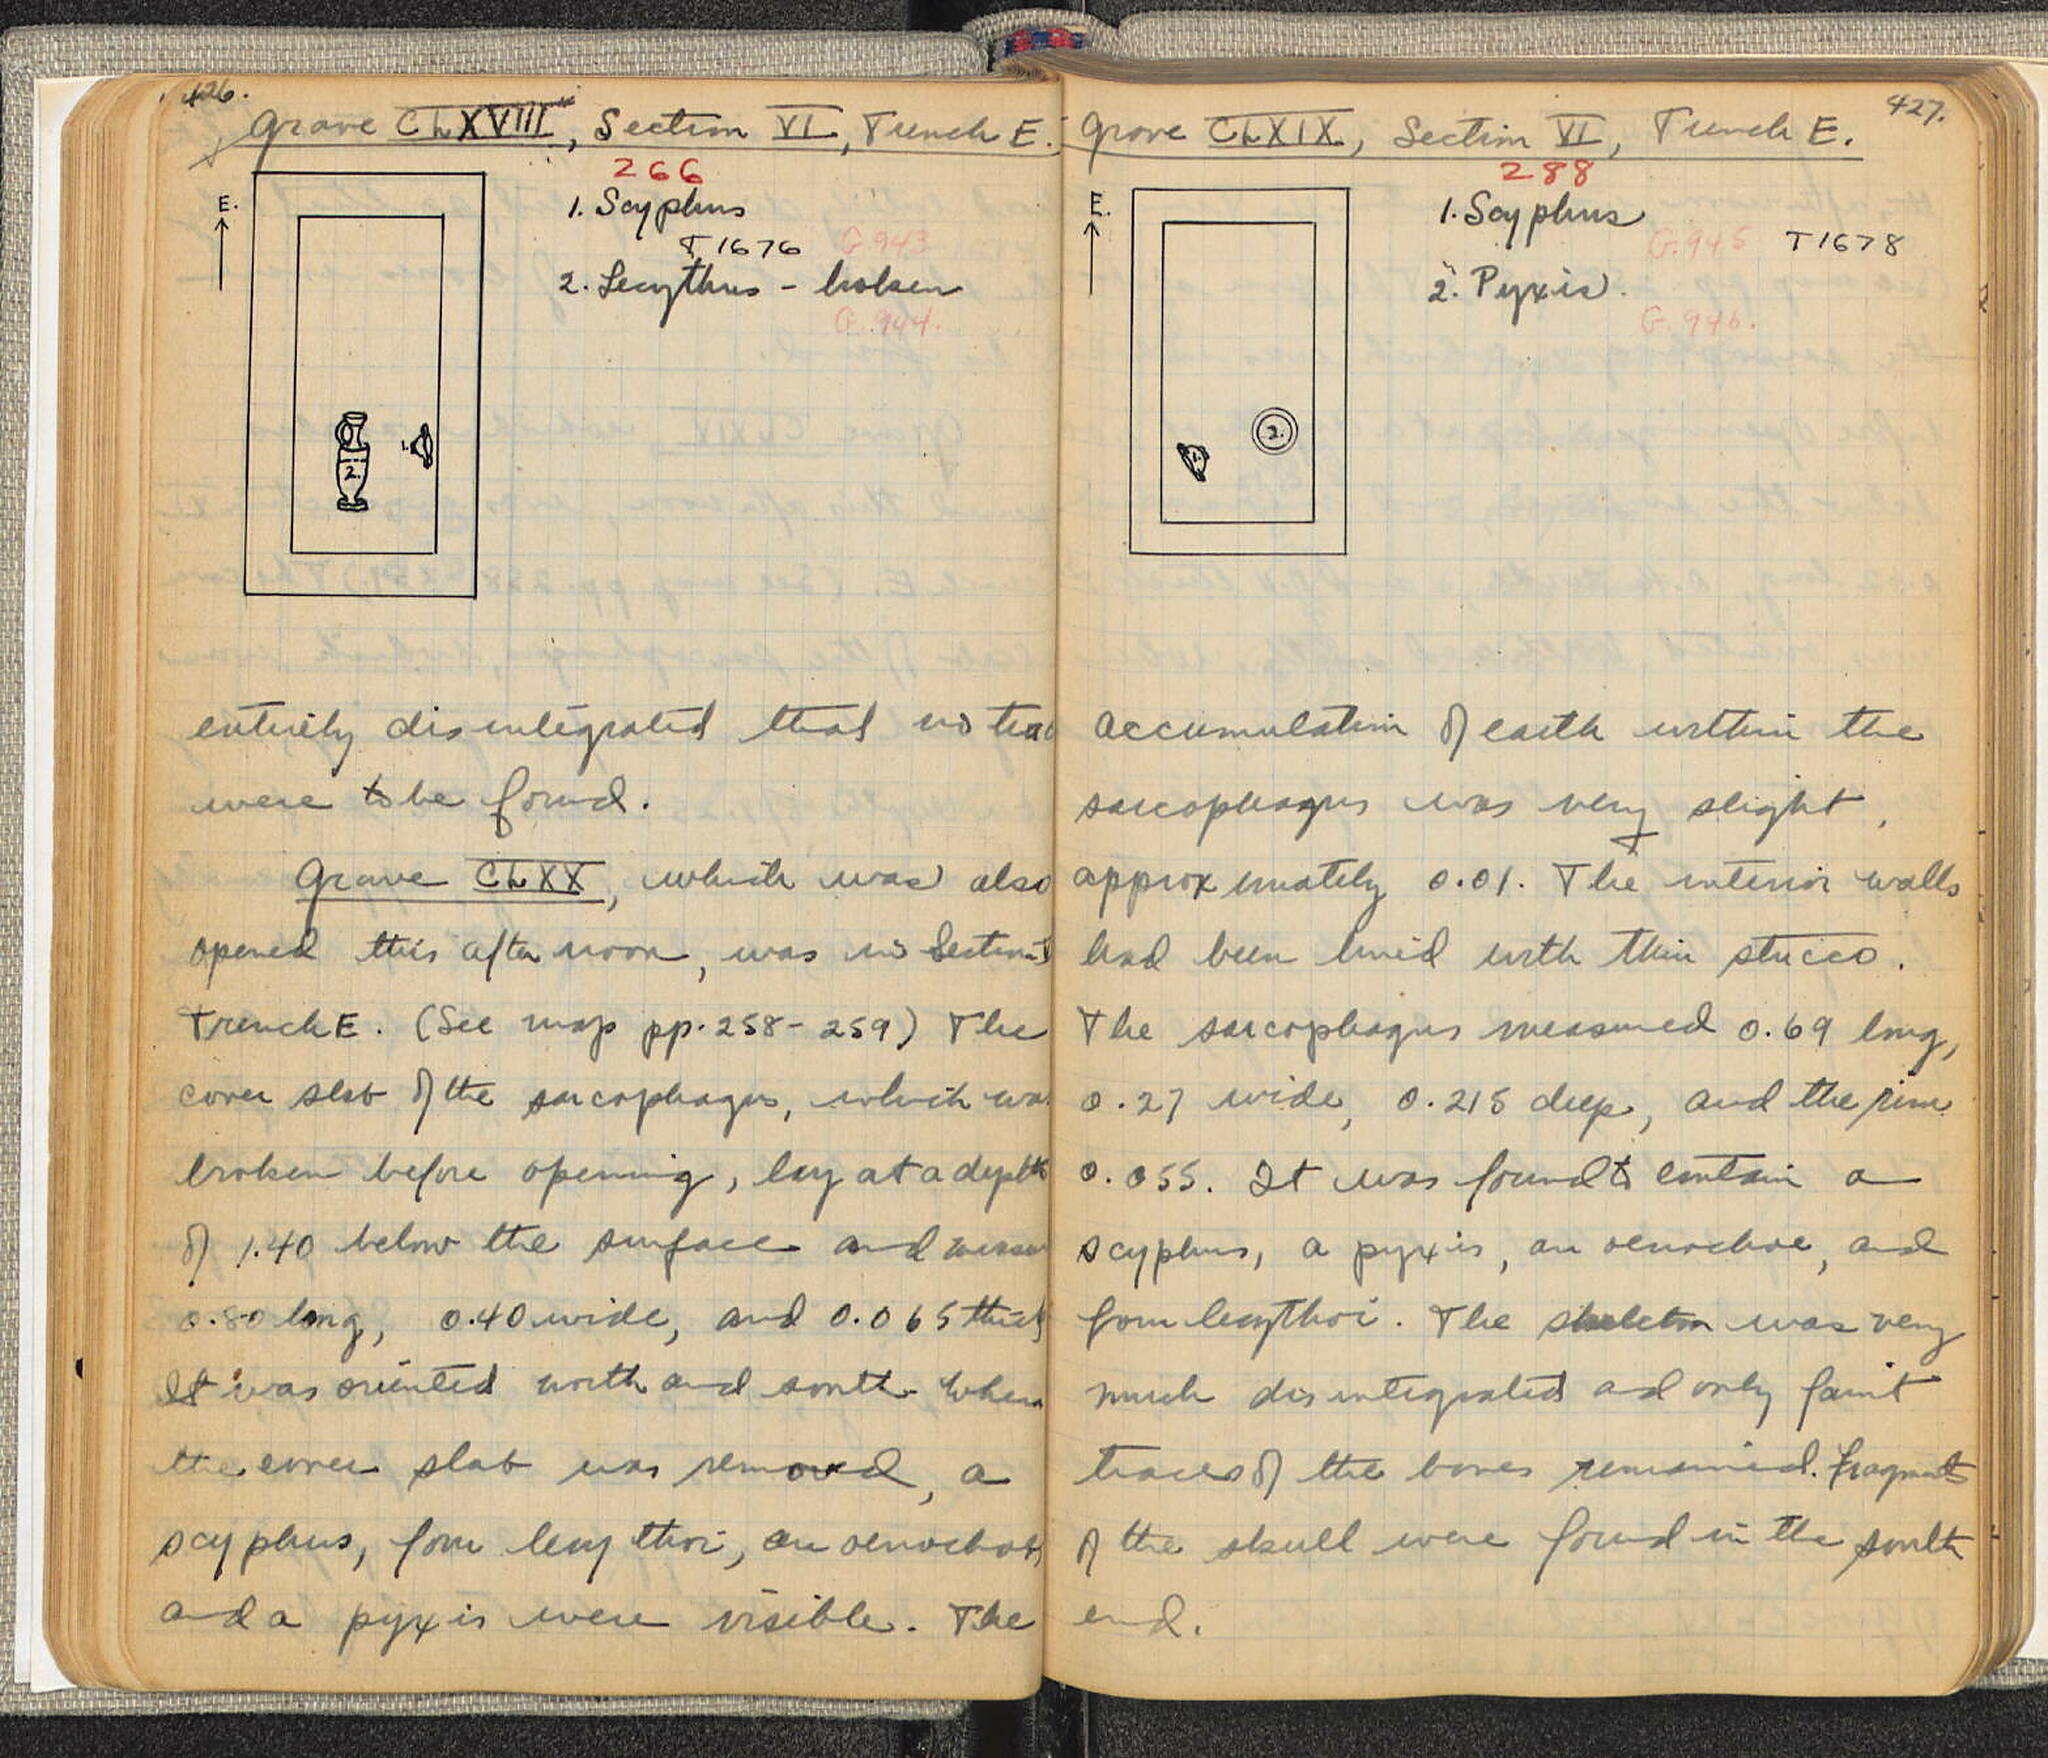 426.
Grave CLXVIII, Section VI, Trench E.
266
E.
1. Scyphus
T 1676 G.943
2. Lecythus - broken
G.944.
1.
2.
entirely disintegrated that no trac
were to be found.
Grave CLXX, which was also
opened this afternoon, was in Section
Trench E. (See map pp. 258-259) The
cover slab of the sarcophagus, which was
broken before opening, lay at a depth
of 1.40 below the surface and measu
0.80 long, 0.40 wide, and 0.065 thick
It was oriented north and south. When
the cover slab was removed, a
scyphus, four lecythoi, an oenochoe,
and a pyxis were visible. The
427.
Grave CLXIX, Section VI, Trench E.
288
E.
1. Scyphus
G.945 T1678
2. Pyxis.
G.946.
2.
1.
accumulation of earth within the
sarcophagus was very slight,
approximately 0.01. The interior walls
had been lined with thin stucco.
The sarcophagus measured 0.69 long,
0.27 wide, 0.215 deep, and the rim
0.055. It was found to contain a
scyphus, a pyxis, an oenochoe, and
four lecythoi. The skeleton was very
much disintegrated and only faint
traces of the bones remained. Fragments
of the skull were found in the south
end.